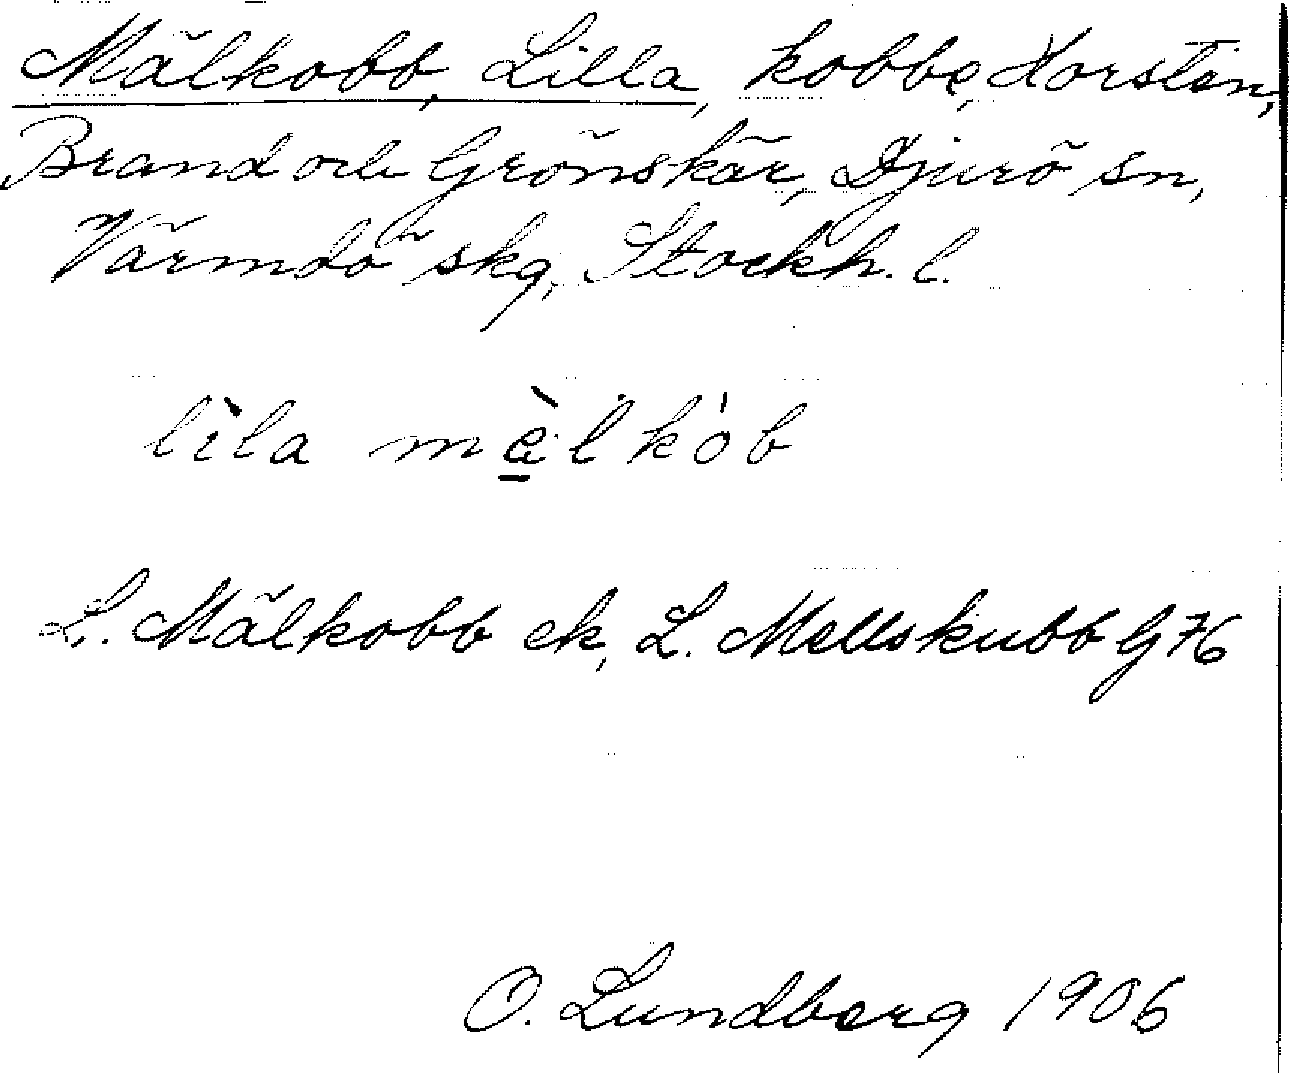 Mälkobb, Lilla, kobbe, Horsten,
Brand och Grönskär, Djurö sn,
Värmdö skg, Stockh. l.
lìla mè̱lkób
L. Mälkobb ek, L. Mellskubb G 76
O. Lundberg 1906